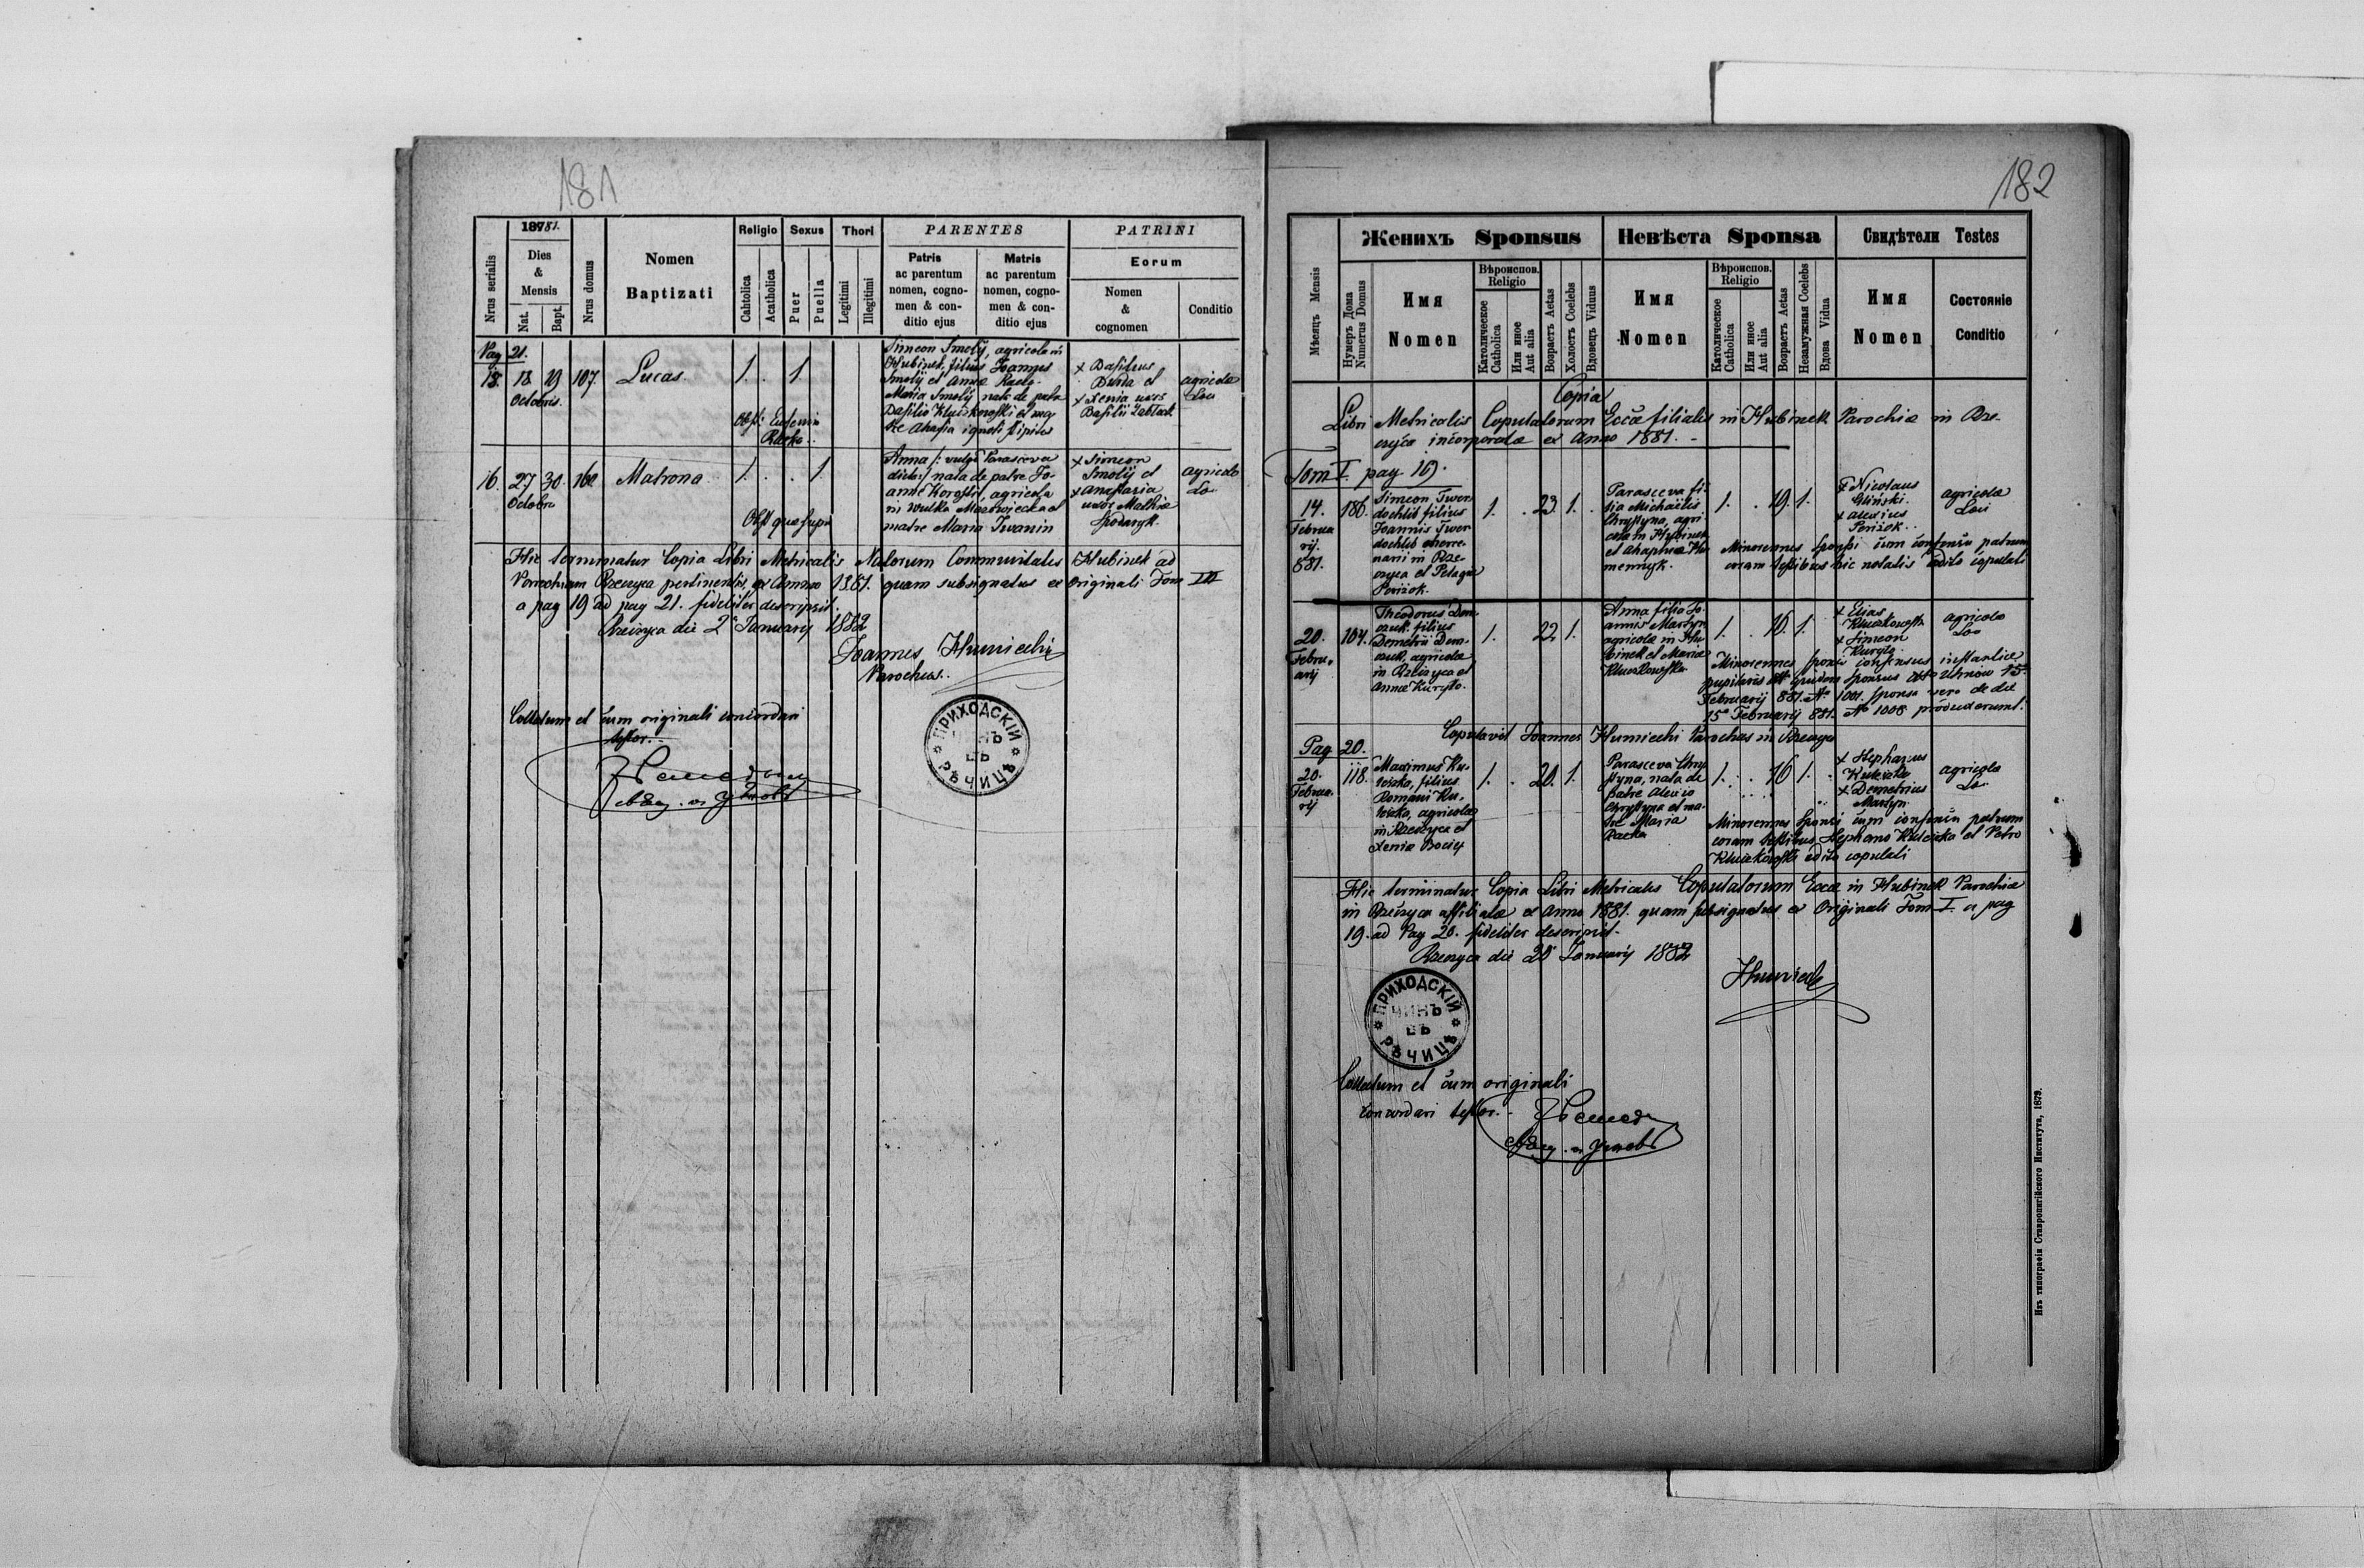 181
1878/81.
Nrus serialis
Dies & Mensis
Nat.
Bapt.
Nrus domus
Nomen Baptizati
Religio
Cahtolica
Acatholica
Sexus
Puer
Puella
Thori
Legitimi
Illegitimi
PARENTES
Patris
ac parentum
nomen, cogno-
men & con-
ditio ejus
Matris
ac parentum
nomen, cogno-
men & con-
ditio ejus
PATRINI
Eorum
Nomen
&
cognomen
Conditio
Pag 21.
15. 18 19 107. Lucas 1. . 1.
Octobris.
Obst: Eufemia
Racka
Simeon Smolÿ, agricola in
Hubinek, filius Joannes
Smolÿ et Anna Racka
Maria Smolÿ nata de patre
Basilio Kluczkowski et ma-
tre Ahafia ignoti stipites
+ Basilius
Duda et
+ Xenia uxor
Basilii
agricolae
Loci
16. 27 30. 160 Matrona 1. . . 1
Octobris
Obst quae supra
Anna /: vulgo Parasceva
dicta:/ nata de patre Jo-
anne Korostil, agricola
in Wulka Mazowiecka et
matre Maria Iwanin
+ Simeon
Smolÿ et
+ Anastasia
uxor Mathiae
Spodaryk.
agricolae
Loc
Hic terminatur Copia Libri Metricalis Natorum Communitatis Hubinek ad
Parochiam Rzeczyca pertinentis, ex Anno 1881. quam subsignatus ex originali Tom III
a pag 19 ad pag 21. fideliter descripsit.
Rzeczyca die 2 Januarÿ 1882
Joannes Humiecki
Parochus.
Collatum et cum originali concordari
testor.
ПРИХОДСКІЙ ЧИНЪ ВЪ РѢЧИЦѢ
182
Мѣсяцъ Mensis
Женихъ Sponsus
Нумеръ Дома
Numerus Domus
Имя
Nomen
Вѣроиспов.
Religio
Католическое
Catholica
Или иное
Aut alia
Возрастъ Aetas
Холостъ Coelebs
Вдовецъ Viduus
Невѣста Sponsa
Имя
Nomen
Вѣроиспов.
Religio
Католическое
Catholica
Или иное
Aut alia
Возрастъ Aetas
Незамужная Coelebs
Вдова Vidua
Свидѣтели Testes
Имя
Nomen
Состояніе
Conditio
Copia
Libri Metricalis Copulatorum Eccae filialis in Hubinek Parochiae in Rze-
czyca incorporatae ex Anno 1881.
Tom I. pag 19.
14.
Februa
rij.
881.
186.
Simeon Twer-
dochlib filius
Joannis Twer
dochlib
in Rze-
czyca et Pelagia
Poniżok.
1. . 23. 1.
Parasceva fi-
lia Michaelis
Chrystyna, agri-
colae in Hubinek
et Ahaphia Kle-
mennyk.
1. . 19. 1.
+ Nicolaus
Gliński
+ Alexius
Poniżok.
agricolae
Loci
Minorennes Sponsi cum consensu patrum
coram testibus hic notatis edito copulati
20.
Febru-
arij
104.
Theodorus Dem-
czuk filius
Demetrii Dem-
czuk, agricolae
in Rzeczyca et
Annae Kuryło.
1. 22 1.
Anna filia Jo-
annis Martyn
agricolae in Hu-
binek et Mariae
Kluczkowska
1. . 16. 1.
+ Elias
Kluczkowski
+ Simeon
Kuryło
agricolae
Loc
Minorennes Sponsi consensus instantiae
pupillaris sponsus Uhnów 15
Februarij 881. № 1001. Sponsa vero de die
15 Februarij 881. № 1008 produxerunt.
Copulavit Joannes Humiecki Parochus in Rzeczyca
Pag 20.
20.
Februa-
rij
118.
Maximus Ku-
leszka, filius
Romani Ku-
leszka, agricolae
in Rzeczyca et
Xenia
1. . 20. 1.
Parasceva Chry-
styna, nata de
patre Alexio
Chrystyna et ma-
tre Maria
Racka
1. . 16 1.
+ Stephanus
Kuleszka
+ Demetrius
Martyn
agricolae
Loc
Minorennes Sponsi cum consensu patrum
coram testibus Stephano Kuleszka et Petro
Kluczkowski edito copulati
Hic terminatur Copia Libri Metricalis Copulatorum Eccae in Hubinek Parochiae
in Rzeczyca affiliatae ex Anno 1881. quam subsignatus ex Originali Tom I. a pag
19. ad Pag 20. fideliter descripsit.
Rzeczyca die 20 Januarij 1882
Humiecki
ПРИХОДСКІЙ ЧИНЪ ВЪ РѢЧИЦѢ
Collatum et cum originali
concordari testor.
Изъ типографіи Ставропигійского Института, 1879.